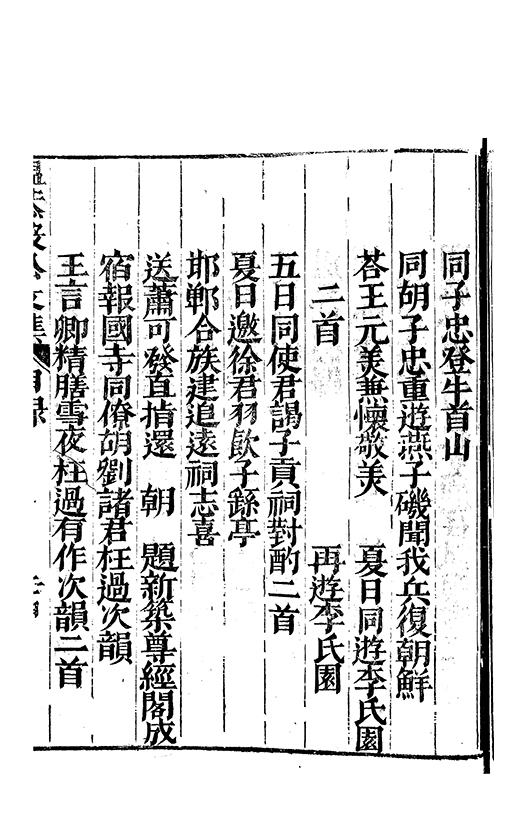 同子忠登牛首山
同胡子忠重遊燕子磯聞我兵復朝鮮
荅王元美兼懷敬美　夏日同遊李氏園
二首　再遊李氏園
五日同使君謁子貢祠對酌二首
夏日邀徐君羽飲子繇亭
邯鄲合族建追遠祠志喜
送蕭可發直指還　朝　題新築尊經閣成
宿報國寺同僚胡劉諸君枉過次韻
王言卿精膳雪夜枉過有作次韻二首